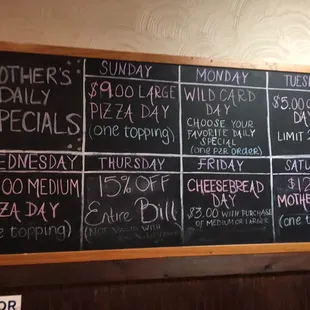 OTHER'S
DAILY
SPECIALS
SUNDAY
$9.00 LARGE
PIZZA DAY
(one topping)
MONDAY
WILD CARD
DAY
CHOOSE YOUR
FAVORITE DAILY
SPECIAL
(one per order)
TUES
$5.00
DAY
LIMIT 2
EDNESDAY
00 MEDIUM
ZZA DAY
e topping)
THURSDAY
15% OFF
Entire Bill
(NOT VALID WITH
FRIDAY
CHEESEBREAD
DAY
$3.00 WITH PURCHASE
OF MEDIUM OR LARGE
SATU
$12
MOTHE
(one t
OR